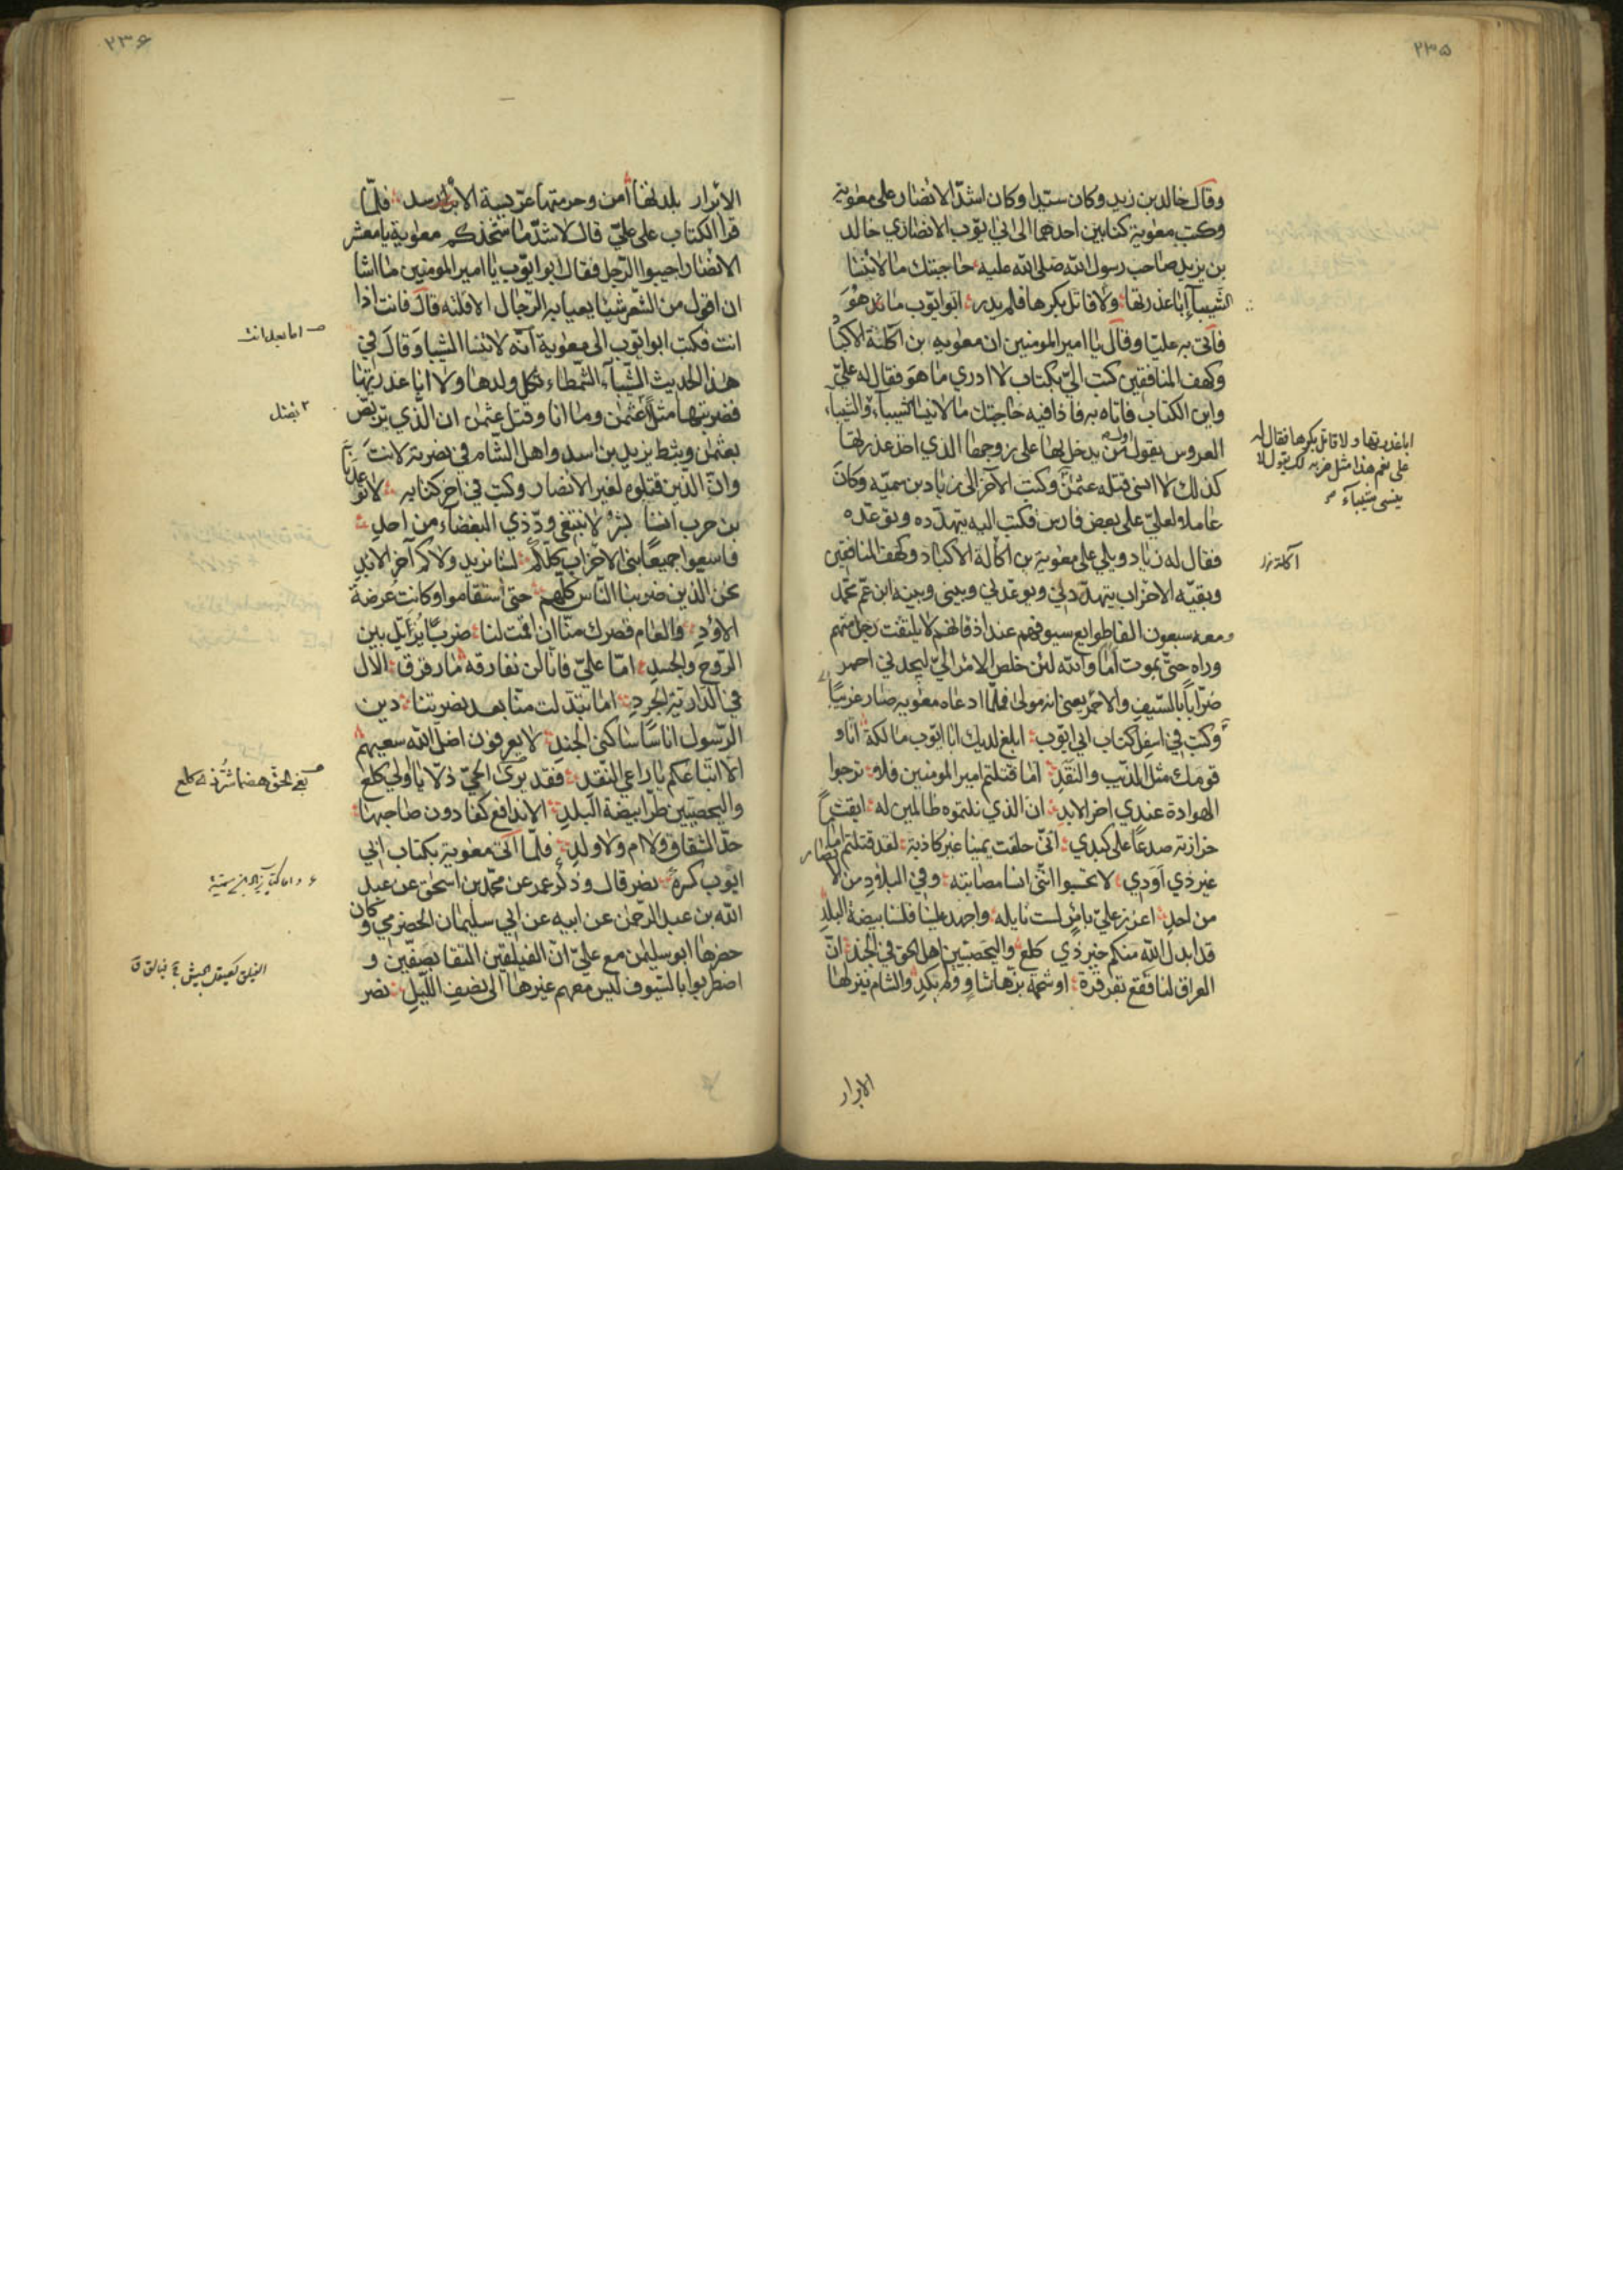 ٢٣٥
وقال خالد بن زيد وكان سيدا وكان اشد الانصار على معوية
وكتب معوية كتابين احدهما الى ابي ايوب الانصاري خالد
بن يزيد صاحب رسول الله صلى الله عليه حاجيتك ما لا تنسا
الشيباء ابا عذرتها ولا قاتل بكرها فلم يدر ابو ايوب ما هو
فاتى به عليا وقال يا امير المومنين ان معويه بن اكلة الاكبا
وكهف المنافقين كتب الي بكتاب لا ادري ما هو فقال له علي
واين الكتاب فاتاه به فاذا فيه حاجيتك ما لا تنسا الشيباء والشيباء
العروس يقول من يدخل بها على زوجها الذي اخذ عذرتها
كذلك لا انسى قتله عثمن وكتب الآخر الى زياد بن سميه وكان
عاملا لعلي على بعض فارس فكتب اليه يتهدده ويوعده
فقال له زياد ويلي على معوية بن اكالة الاكباد وكهف المنافقين
وبقيه الاحزاب يتهددني ويوعدني وبيني وبينه ابن عم محمد
ومعه سبعون الفا طوايع سيوفهم عند اذقانهم لا يلتفت رجل منهم
وراه حتى يموت اما والله لئن خلص الامر الي ليجدني احمر
ضرابا بالسيف والاحمر يعني انه مولى فلما ادعاه معويه صار عربيا
وكتب في اسفل كتاب ابي ايوب ابلغ لديك ابا ايوب مالكة انا و
قومك مثل الذيب والنقد اما قتلتم امير المومنين فلا ترجوا
الهوادة عندي اخر الابد ان الذي نلتموه ظالمين له ابقت
حزازته صدعا على كبدي اني حلفت يمينا غير كاذبة لقد قتلتم اماما
غير ذي اود لا تحسبوا انني انسا مصابته وفي البلاد من الانصار
من احد اعزز علي بامر لست نايله واجهد علينا فلسنا بيضة البلد
قد ابدل الله منكم خير ذي كلع واليحصبيين اهل الحق في الجند ان
العراق لنا فقع بقرقرة او شحمة بزها شاو ولم يكد والشام ينزلها
ابا عذرتها ولا قاتل بكرها فقال له
على نعم هذا مثل ضربه لك يقول لا
ينسى شيباء
آكلة
الابرار
٢٣۶
الابرار بلدتها امن وحومتها عريسة الاسد فلما
قرا الكتاب على علي قال لاشد ما شحذكم معوية يا معشر
الانصار اجيبوا الرجل فقال ابو ايوب يا امير المومنين ما اشا
ان اقول من الشعر شيئا يعيا به الرجال الا قلته قال فانت اذا
انت فكتب ابو ايوب الى معوية انه لا تنسا الشيبا وقال في
هذا الحديث الشيباء الشمطاء ثكل ولدها ولا ابا عذرتها
فضربتها مثلا بقتل عثمن وما انا وقتل عثمن ان الذي تربص
بعثمن وثبط يزيد بن اسد واهل الشام في نصرته لانت
وان الذين قتلوه لغير الانصار وكتب في اخر كتابه لا توعدنا
بن حرب اننا بشر لا نبتغي ود ذي البغضاء من احد
فاسعوا جميعا بني الاحزاب كلكم لسنا نريد ولاكم آخر الابد
نحن الذين ضربنا الناس كلهم حتى استقاموا وكانت عرضة
الاود والعام قصرك منا ان اقمت لنا ضربا يزايل بين
الروح والجسد اما علي فانا لن نفارقه ما رقرق الال
في الداوية الجرد اما تبدلت منا بعد نصرتنا دين
الرسول اناسا ساكني الجند لا يعرفون اضل الله سعيهم
الا اتباعكم يا راعي النقد فقد بغى الحق هضما شر ذي كلع
واليحصبيين طرا بيضة البلد الا ندافع كفا دون صاحبها
حد الشقاق ولا ام ولا ولد فلما اتى معوية بكتاب ابي
ايوب كسره نصر قال وذكر عمر عن محمد بن اسحق عن عبد
الله بن عبد الرحمن عن ابيه عن ابي سليمان الحضرمي وكان
حضرها ابو سليمن مع علي ان الفيلقين التقا بصفين و
اضطربوا بالسيوف ليس معهم غيرها الى نصف الليل نصر
اما بعد انت
٢ بقتل
بغى الحق هضما شر ذي كلع
الفيلق كصيقل الجيش ج فيالق ق